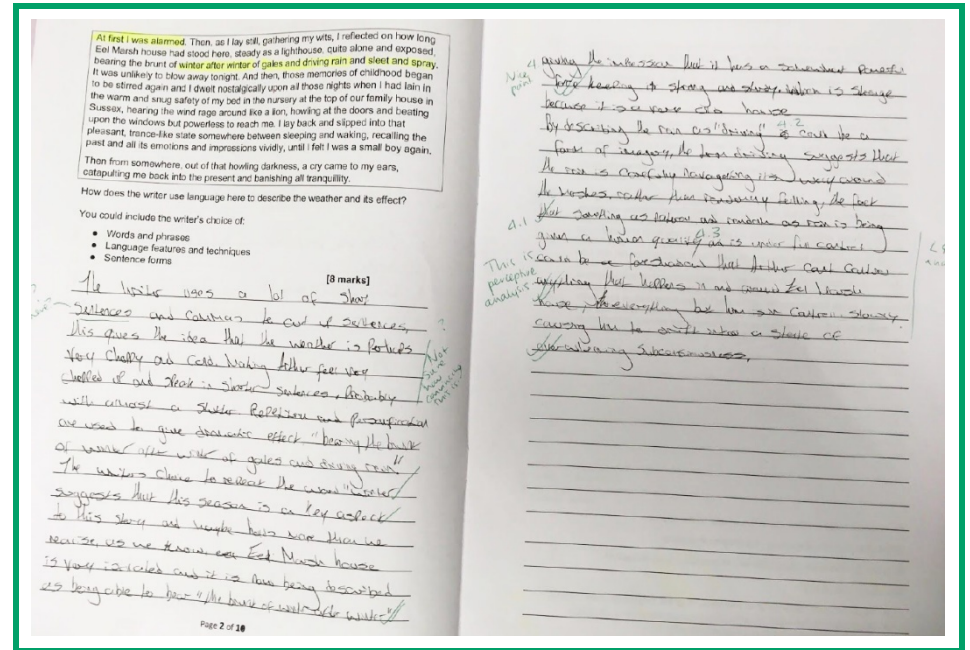 At first I was alarmed. Then, as I lay still, gathering my wits, I reflected on how long
Eel Marsh house had stood here, steady as a lighthouse, quite alone and exposed,
bearing the brunt of winter after winter of gales and driving rain and sleet and spray.
It was unlikely to blow away tonight. And then, those memories of childhood began
to be stirred again and I dwelt nostalgically upon all those nights when I had lain in
the warm and snug safety of my bed in the nursery at the top of our family house in
Sussex, hearing the wind rage around like a lion, howling at the doors and beating
upon the windows but powerless to reach me. I lay back and slipped into that
pleasant, trance-like state somewhere between sleeping and waking, recalling the
past and all its emotions and impressions vividly, until I felt I was a small boy again.
Then from somewhere, out of that howling darkness, a cry came to my ears,
catapulting me back into the present and banishing all tranquillity.
How does the writer use language here to describe the weather and its effect?
You could include the writer's choice of:
• Words and phrases
• Language features and techniques
• Sentence forms
[8 marks]
The writer uses a lot of short
sentences and commas to cut of sentences,
this gives the idea that the weather is Perhaps
very choppy and cold. Making Arthur feel very
chopped of and speak in shorter sentences, Probably
with almost a stutter Repetition and Personification
are used to give dramatic effect "bearing the brunt
of winter after winter of gales and driving rain"
The writers choice to repeat the word "winter"
suggests that this season is a key aspect
to this story and maybe holds more than we
realise, as we know Eel Marsh house
is very isolated and it is now being described
as being able to bear "the brunt of winter after winter"
? Not
sure
how
convincing
this is
Page 2 of 10
4 giving the impression that it has a powerful
force keeping it strong and which is strange
because it is a house
By describing the rain as "driving" 4.2 could be a
form of imagery, the term driving suggests that
the rain is carefully its way around
the marshes rather than randomly falling, the fact
4.1 that something as natural and random as rain is being
given a human quality 4.3 and is under control
could be foreshadow that Arthur cant control
anything that happens in and around Eel Marsh
house, everything but him in control slowly.
causing him to drift into a state of
overwhelming subconsciousness.
Nice
point
This is
perceptive
analysis